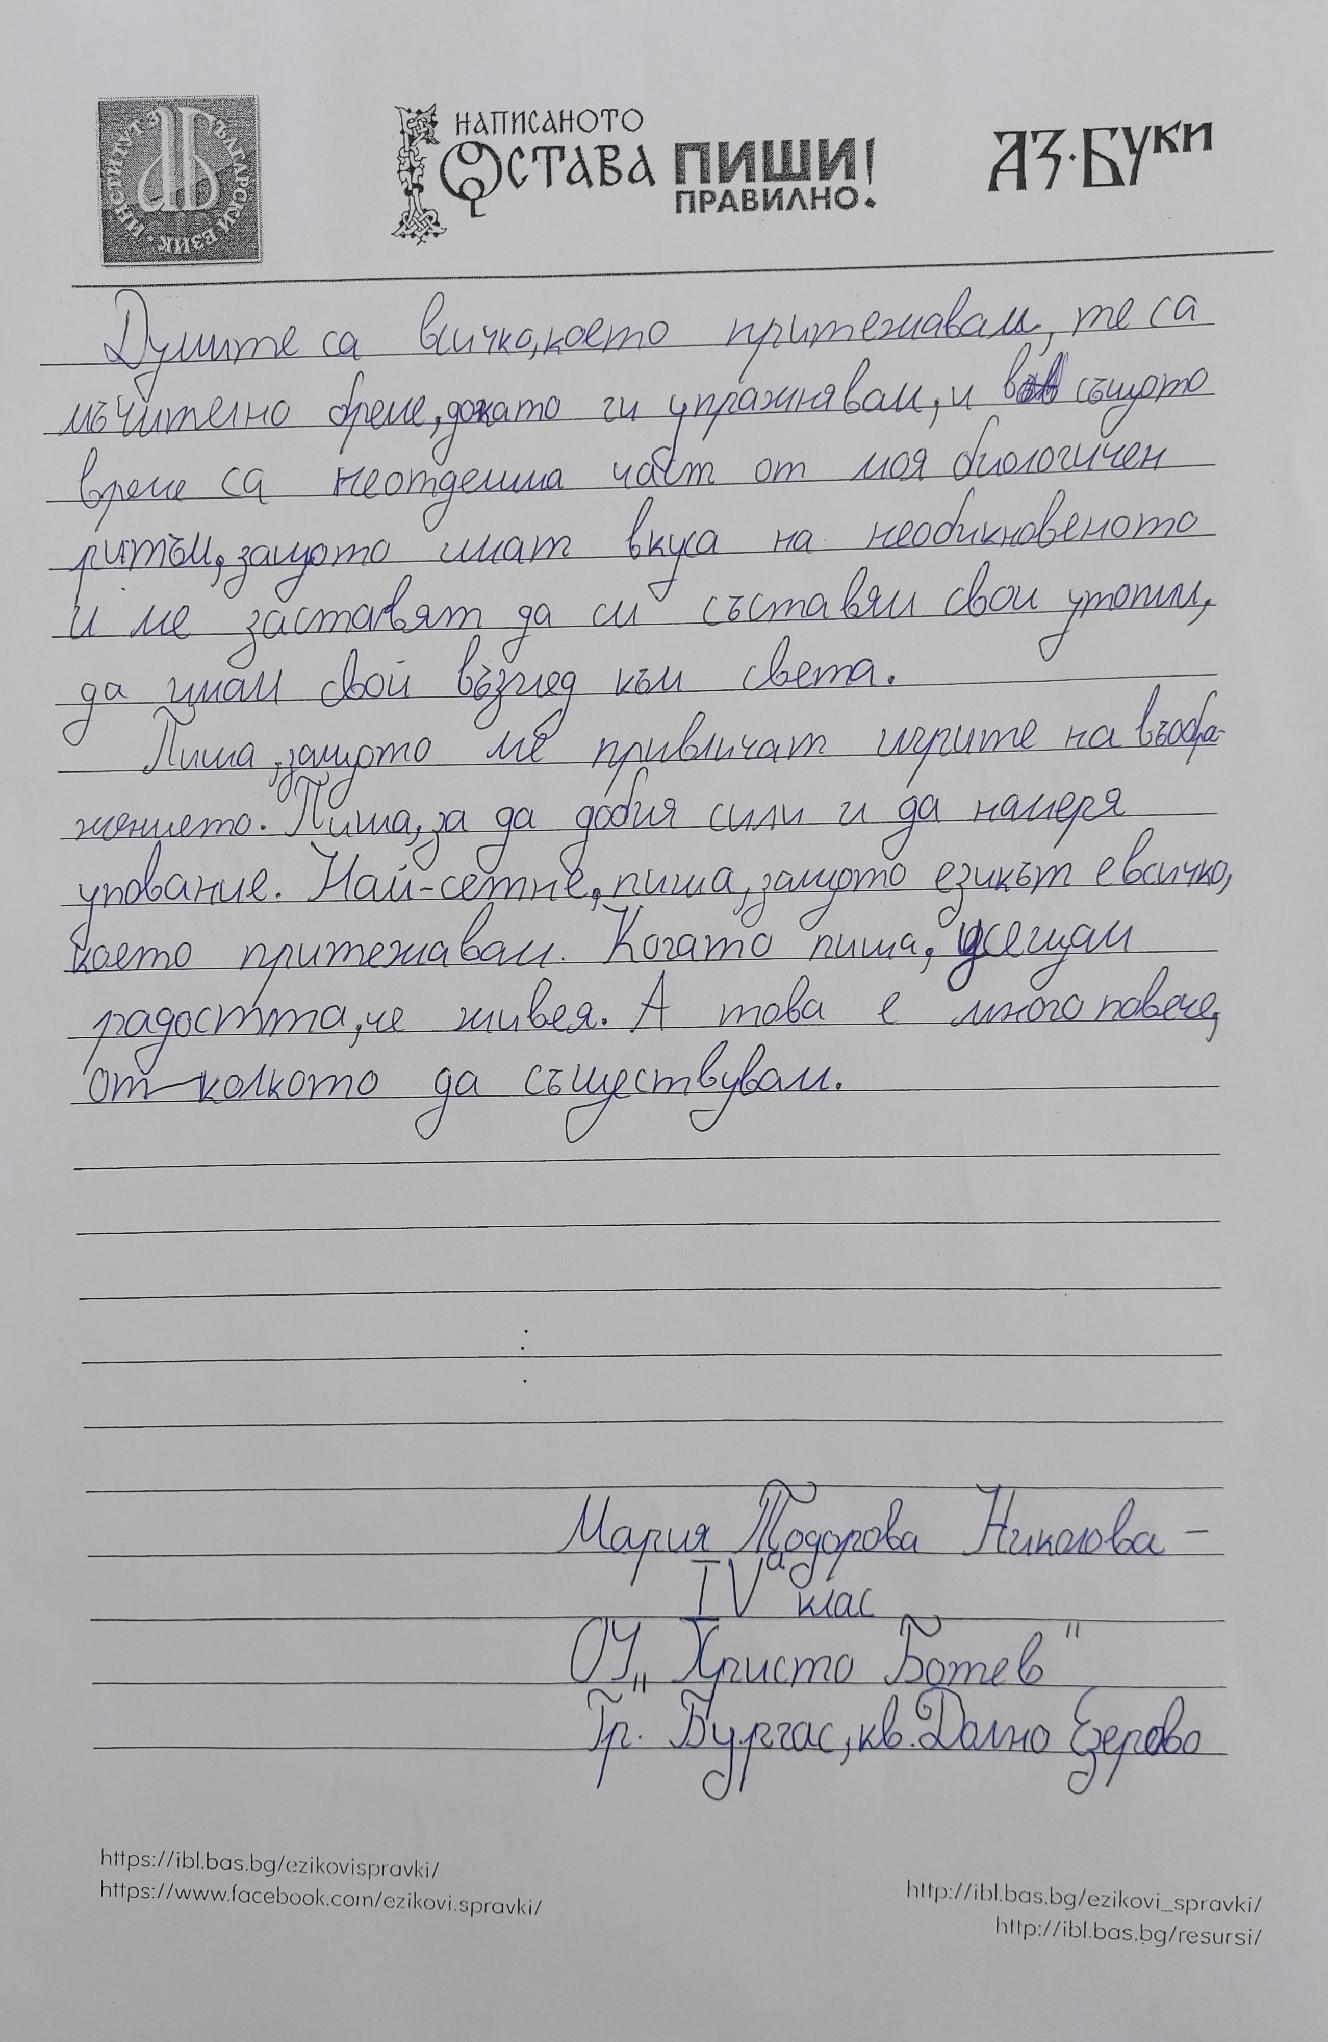 ИНСТИТУТ ЗА БЪЛГАРСКИ ЕЗИК
НАПИСАНОТО
ОСТАВА ПИШИ!
ПРАВИЛНО.
АЗ·БУКИ
Думите са всичко,което притежавам, те са
мъчително бреме,докато ги упражнявам, и в същото
време са неотделима част от моя биологичен
ритъм, защото имат вкуса на необикновеното
и ме заставят да си съставям свои утопии,
да имам свой възглед към света.
Пиша, защото ме привличат игрите на въобра-
жението. Пиша, за да добия сили и да намеря
упование. Най-сетне, пиша, защото езикът е всичко,
което притежавам. Когато пиша, усещам
радостта, че живея. А това е много повече,
от колкото да съществувам.
Мария Тодорова Николова -
IVа клас
ОУ „Христо Ботев"
Гр. Бургас, кв. Долно Езерово
https://ibl.bas.bg/ezikovispravki/
https://www.facebook.com/ezikovi.spravki/
http://ibl.bas.bg/ezikovi_spravki/
http://ibl.bas.bg/resursi/